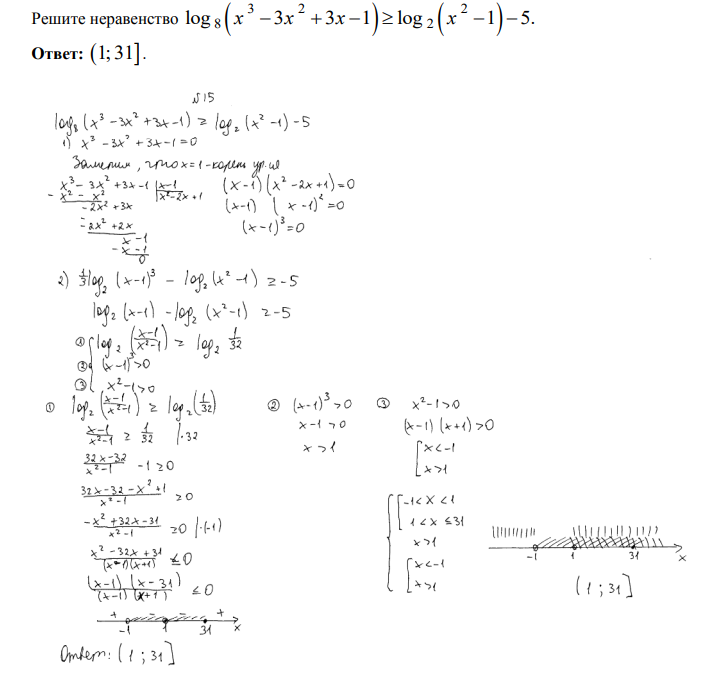 Решите неравенство log₈(x³ − 3x² + 3x − 1) ≥ log₂(x² − 1) − 5.
Ответ: (1; 31].
№15
log₈ (x³ −3x² +3x −1) ≥ log₂ (x² −1) −5
1) x³ −3x² +3x −1 = 0
Заметим, что x=1 - корень ур-ия
x³ − 3x² + 3x −1 | x−1
− x² − x² | x² −2x +1
−2x² +3x
−2x² +2x
x −1
− x −1
0
(x−1) (x² −2x +1) = 0
(x−1) (x −1)² = 0
(x −1)³ = 0
2) 1/3 log₂ (x−1)³ − log₂ (x² −1) ≥ −5
log₂ (x−1) − log₂ (x² −1) ≥ −5
① { log₂ ((x−1)/(x²−1)) ≥ log₂ 1/32
② (x−1)³ >0
③ x² −1 >0
① log₂ ((x−1)/(x²−1)) ≥ log₂ (1/32)
(x−1)/(x²−1) ≥ 1/32 |·32
(32x−32)/(x²−1) −1 ≥ 0
(32x −32 −x² +1)/(x² −1) ≥ 0
(−x² +32x −31)/(x² −1) ≥ 0 |·(−1)
(x² −32x +31)/((x−1)(x+1)) ≤ 0
((x−1) (x −31))/((x−1) (x+1)) ≤ 0
+ − − +
−1 1 31 x
② (x−1)³ >0
x −1 >0
x >1
③ x² −1 >0
(x−1) (x+1) >0
[ x < −1
x >1
{ [ −1 < x < 1
1 < x ≤ 31
x >1
[ x < −1
x >1
−1 1 31 x
(1 ; 31]
Ответ: (1 ; 31]